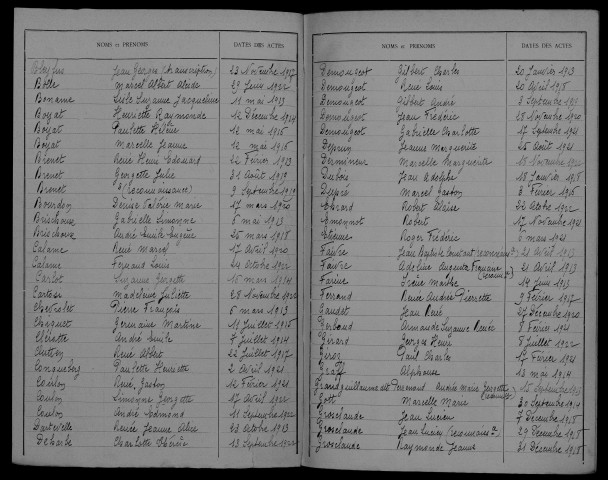 NOMS et PRÉNOMS DATES DES ACTES
Jean Georges (transcription) 23 Novembre 1917
Bôle Marcel Albert 29 Juin 1922
Boname Lucie Suzanne Jacqueline 11 mai 1913
Boyat Henriette Raymonde 12 Décembre
Boyat Paulette Hélène 12 mai 1916
Boyat Marcelle Jeanne 12 mai 1916
Brenet René Henri Edouard 22 Février 1913
Brenet Georgette Julie 31 Août 1919
Brenet (Reconnaissance) 9 Septembre 1919
Bourdon Denise Valérie Marie 17 mars 1920
Brischoux Gabrielle Simonne 6 mai 1913
Brischoux André Emile Eugène 26 mars 1918
Calame René Marcel 17 Avril 1920
Calame Fernand Louis 24 Octobre 1922
Carlot Suzanne Georgette 16 mars 1914
Carteau Madeleine Juliette 28 Novembre
Chevalet Pierre François 6 mars 1913
Germaine Martine 11 Juillet 1915
André Emile 7 Juillet 1914
René Albert 22 Juillet 1917
Paulette Henriette 2 Avril 1921
Coulon René Gaston 12 Février 1921
Coulon Simonne Georgette 17 Avril 1922
Coulon André Edmond 11 Septembre 1922
Dartevelle Renée Jeanne Alice 23 Octobre 1913
Charlotte 13 Septembre 1922
NOMS et PRÉNOMS DATES DES ACTES
Demougeot Gilbert Charles 20 Janvier 1913
Demougeot René Louis 20 Avril 1918
Demougeot Gilbert André 3 Septembre
Demougeot Jean Frédéric 28 Novembre 1920
Demougeot Gabrielle Charlotte 17 Septembre 1921
Jeanne Marguerite 25 Août 1921
Marcelle Marguerite 18 Novembre 1922
Dubois Jean Adolphe 18 Janvier 1915
Dupré Marcel Gaston 3 Février 1916
Robert 22 Octobre 1922
Robert 17 Novembre 1921
Etienne Roger Frédéric 6 mars 1921
Faivre Jean Baptiste Constant 21 Avril 1913
Faivre Adeline Augusta 21 Avril 1913
Farine 14 Juin 1913
Ferrand René André Pierrette 9 Février 1917
Gaudet Jean René 27 Décembre 1920
Gerbaud Armande Suzanne Renée 8 Février 1921
Girard Georges Henri 8 Juillet 1922
Paul Charles 17 Février 1921
Graff Alphonse 13 mai 1914
Grandguillaume Andrée Marie Georgette 15 Septembre
Marcelle Marie 30 Septembre 1914
Grosclaude Jean Lucien 7 Décembre 1918
Grosclaude Jean Lucien 29 Décembre 1918
Grosclaude Raymonde Jeanne 31 Décembre 1918